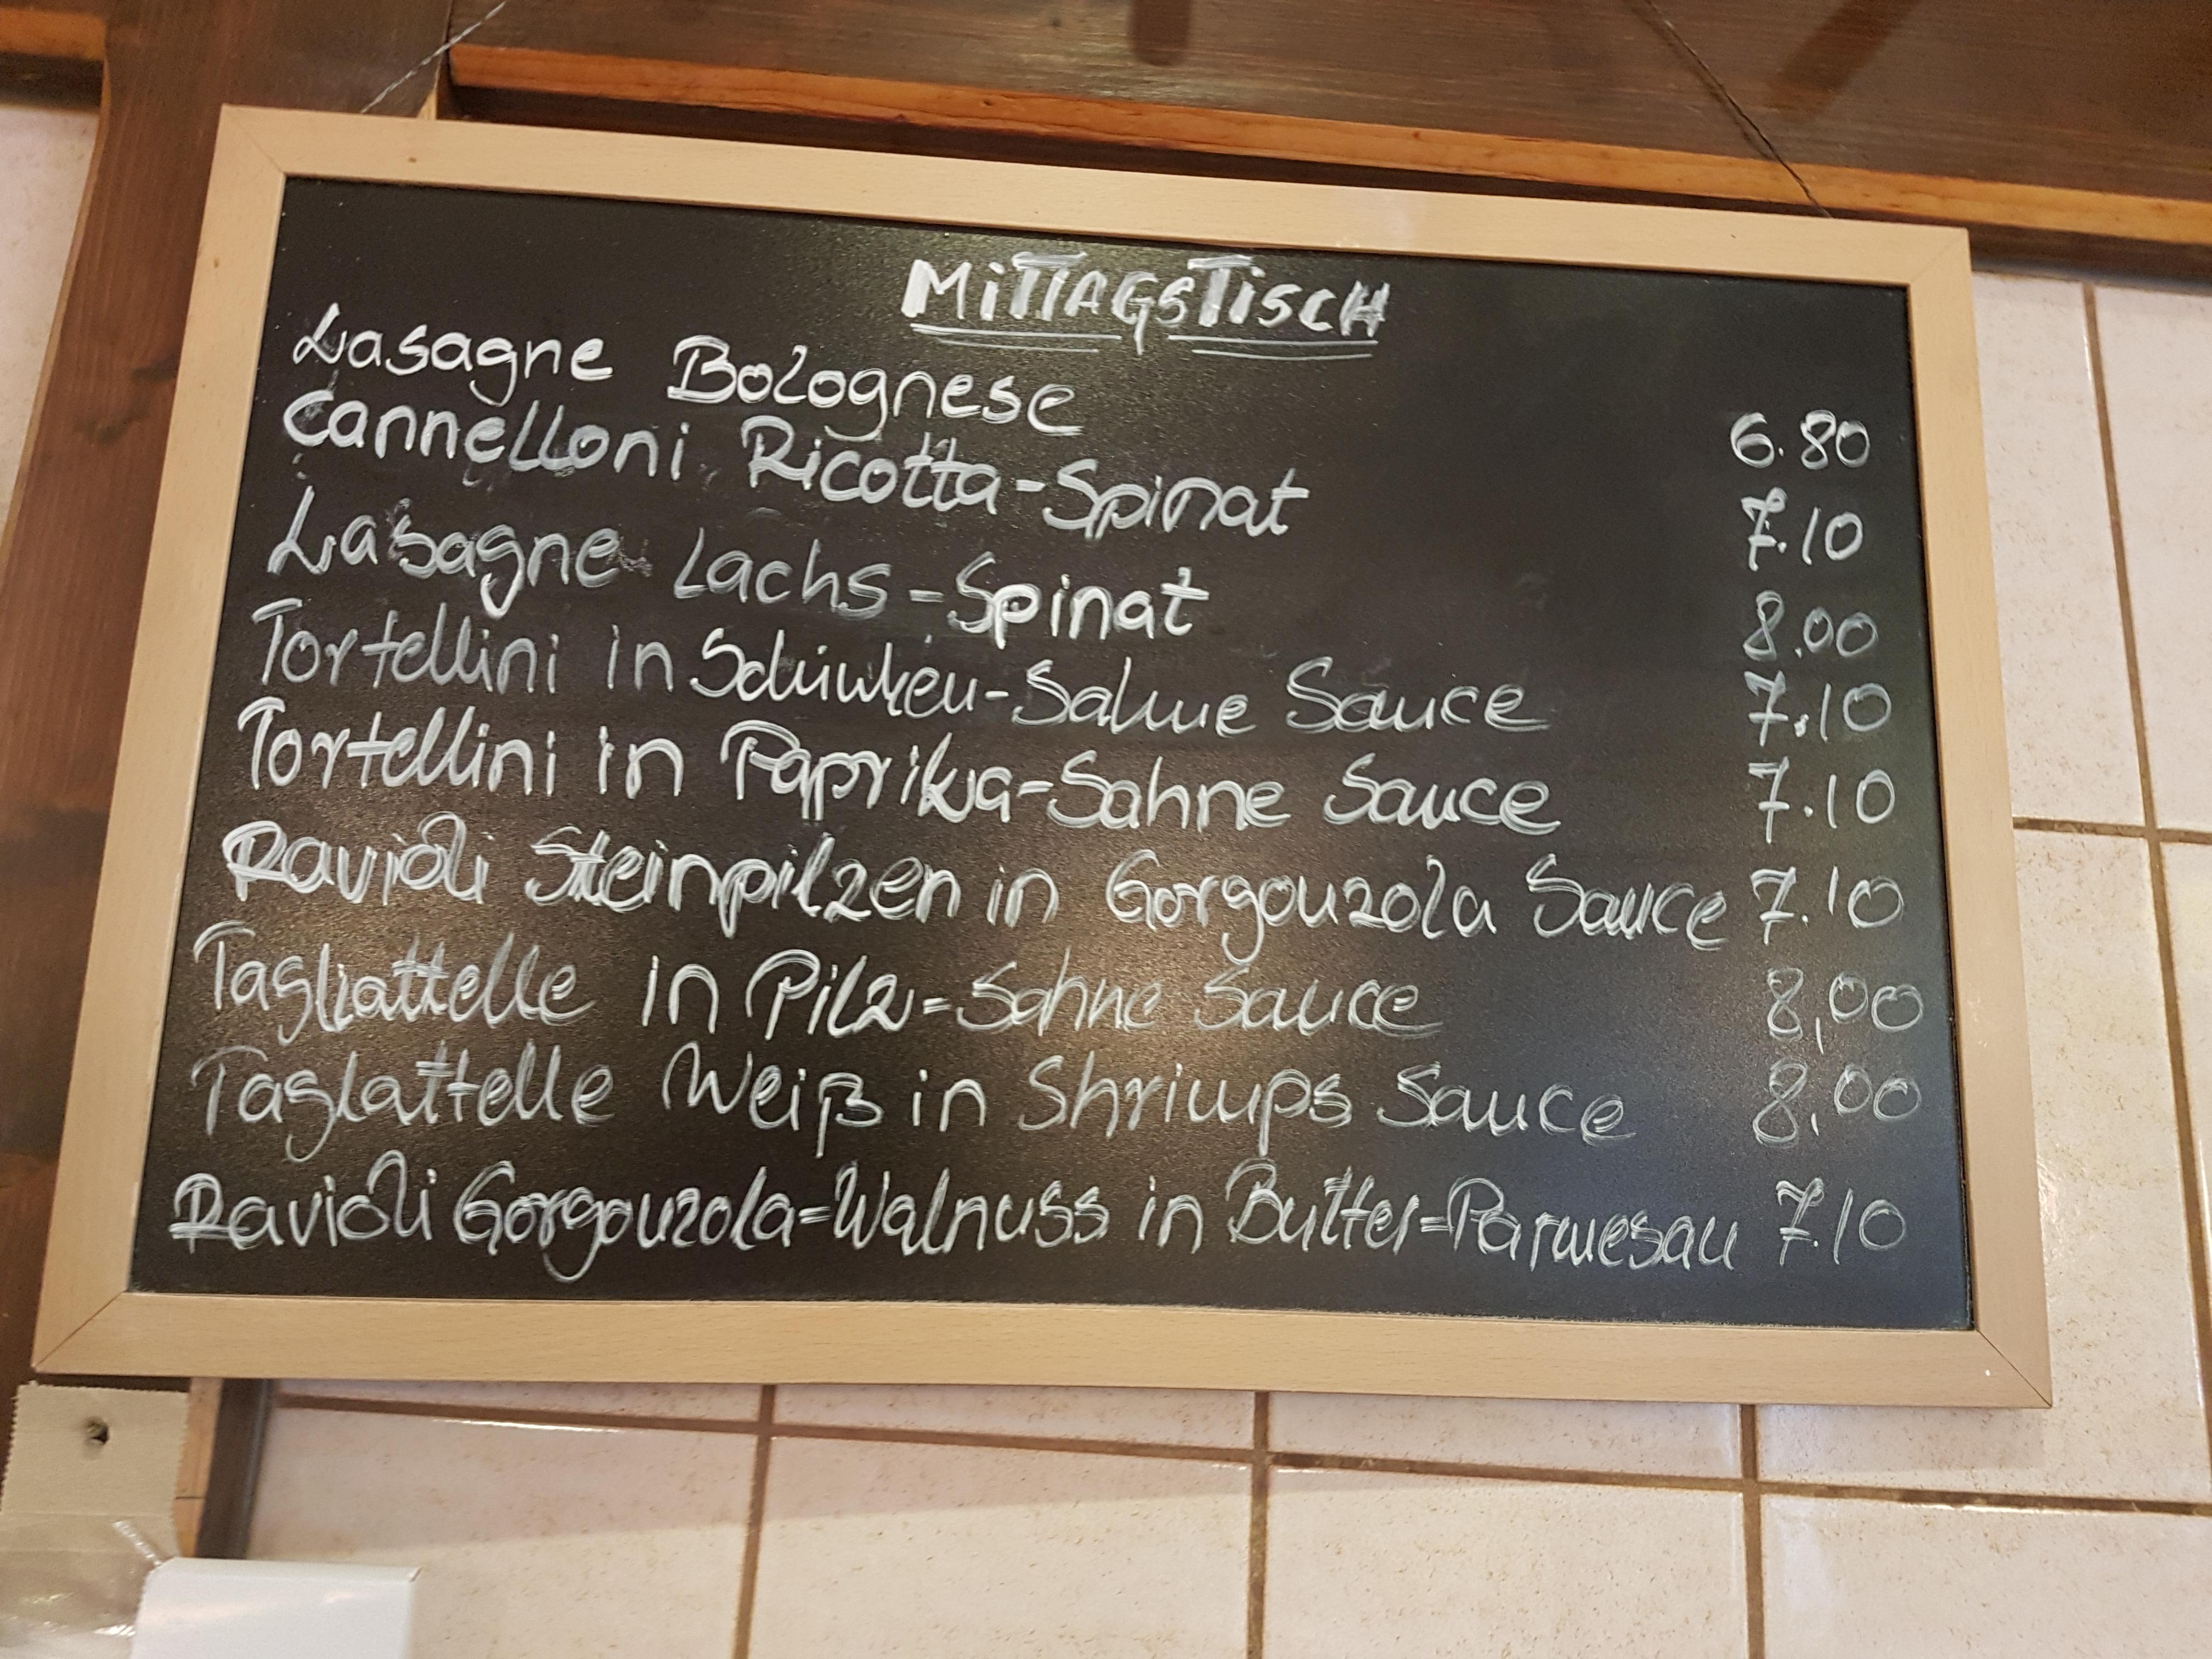 MiTTAGSTiSCH
Lasagne Bolognese 6.80
Cannelloni Ricotta-Spinat 7.10
Lasagne Lachs-Spinat 8.00
Tortellini in Schinken-Sahne Sauce 7.10
Tortellini in Paprika-Sahne Sauce 7.10
Ravioli Steinpilzen in Gorgonzola Sauce 7.10
Tagliattelle in Pilz=Sahne Sauce 8,00
Taglattelle Weiß in Shrimps Sauce 8,00
Ravioli Gorgonzola=Walnuss in Butter=Parmesan 7.10